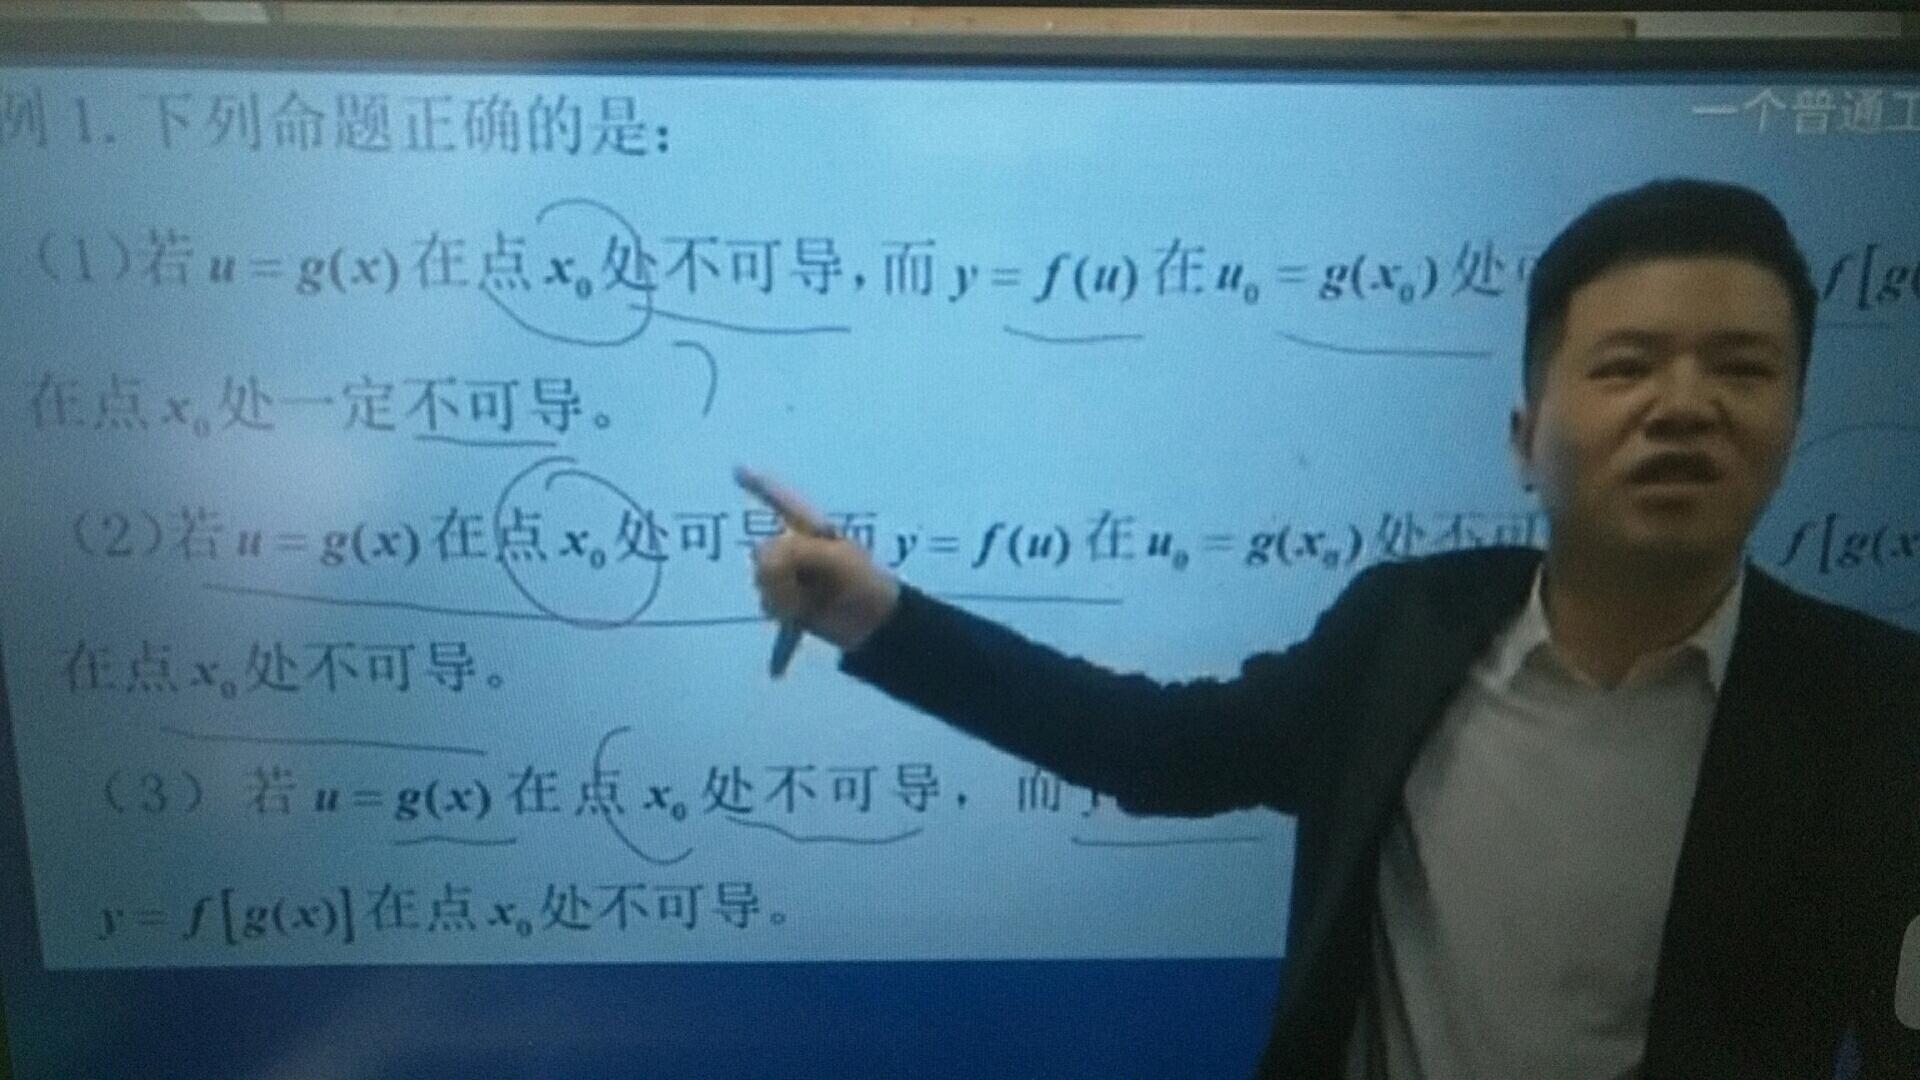 例 1. 下列命题正确的是:
一个普通工
(1)若 u = g(x) 在点 x₀ 处不可导,而 y = f(u) 在 u₀ = g(x₀) 处 f[g(
在点 x₀ 处一定不可导。
(2)若 u = g(x) 在点 x₀ 处可导 而 y = f(u) 在 u₀ = g(x₀) 处不可 f[g(x
在点 x₀ 处不可导。
(3) 若 u = g(x) 在点 x₀ 处不可导, 而
y = f[g(x)] 在点 x₀ 处不可导。